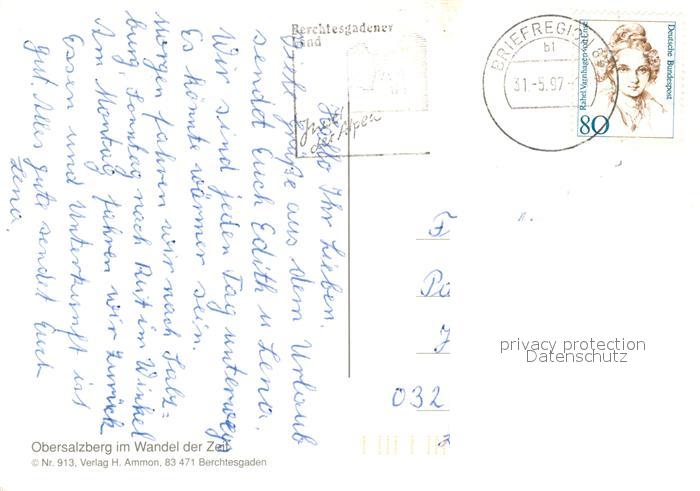 Hallo Ihr Lieben.
Viele Grüße aus dem Urlaub
sendet Euch Edith u Lena.
Wir sind jeden Tag unterwegs
Es könnte wärmer sein.
Morgen fahren wir nach Salz=
burg, Sonntag nach Rut im Winkel
Am Montag fahren wir zurück
Essen und Unterkunft ist
gut. Alles gute sendet Euch
Lena.
Berchtesgadener
Land
Insel
der Alpen
BRIEFREGION
b1
31.-5.97
Rahel Varnhagen von Ense
Deutsche Bundespost
80
F
Pa
032
privacy protection
Datenschutz
Obersalzberg im Wandel der Zeit
© Nr. 913, Verlag H. Ammon, 83 471 Berchtesgaden